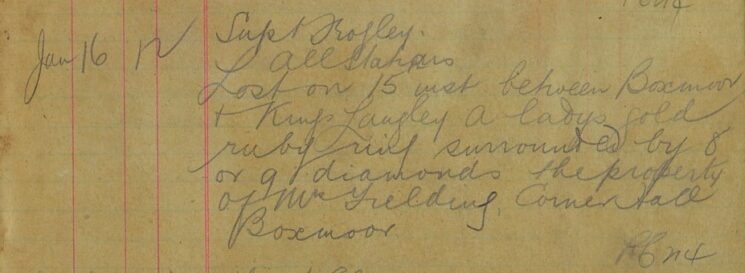 Jan 16 12 Supt Frogley.
All Stations
Lost on 15 inst between Boxmoor
+ Kings Langley A ladys gold
ruby ring surrounded by 8
or 9 diamonds the property
of Mrs Fielding, Corner Hall
Boxmoor
PC 114